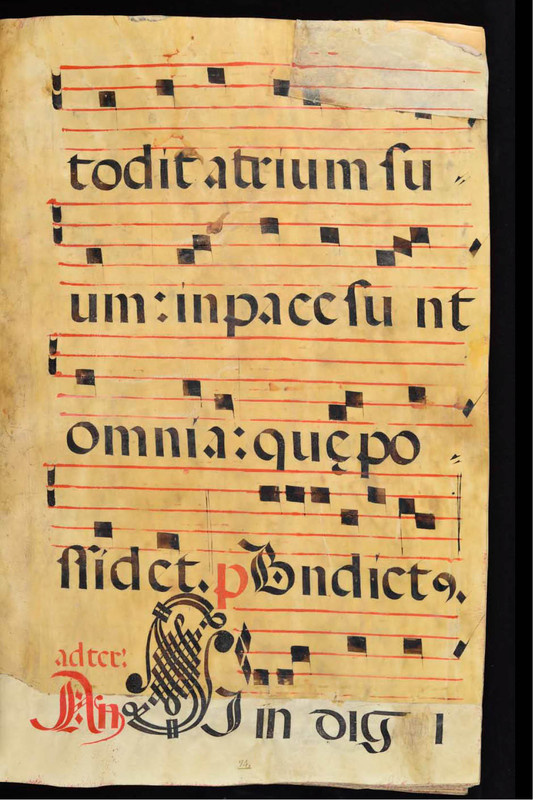 todit atrium su
um: in pace su nt
omnia: quę po
ssidet. p Bndictꝰ.
ad ter:
An SI in dig i
94.